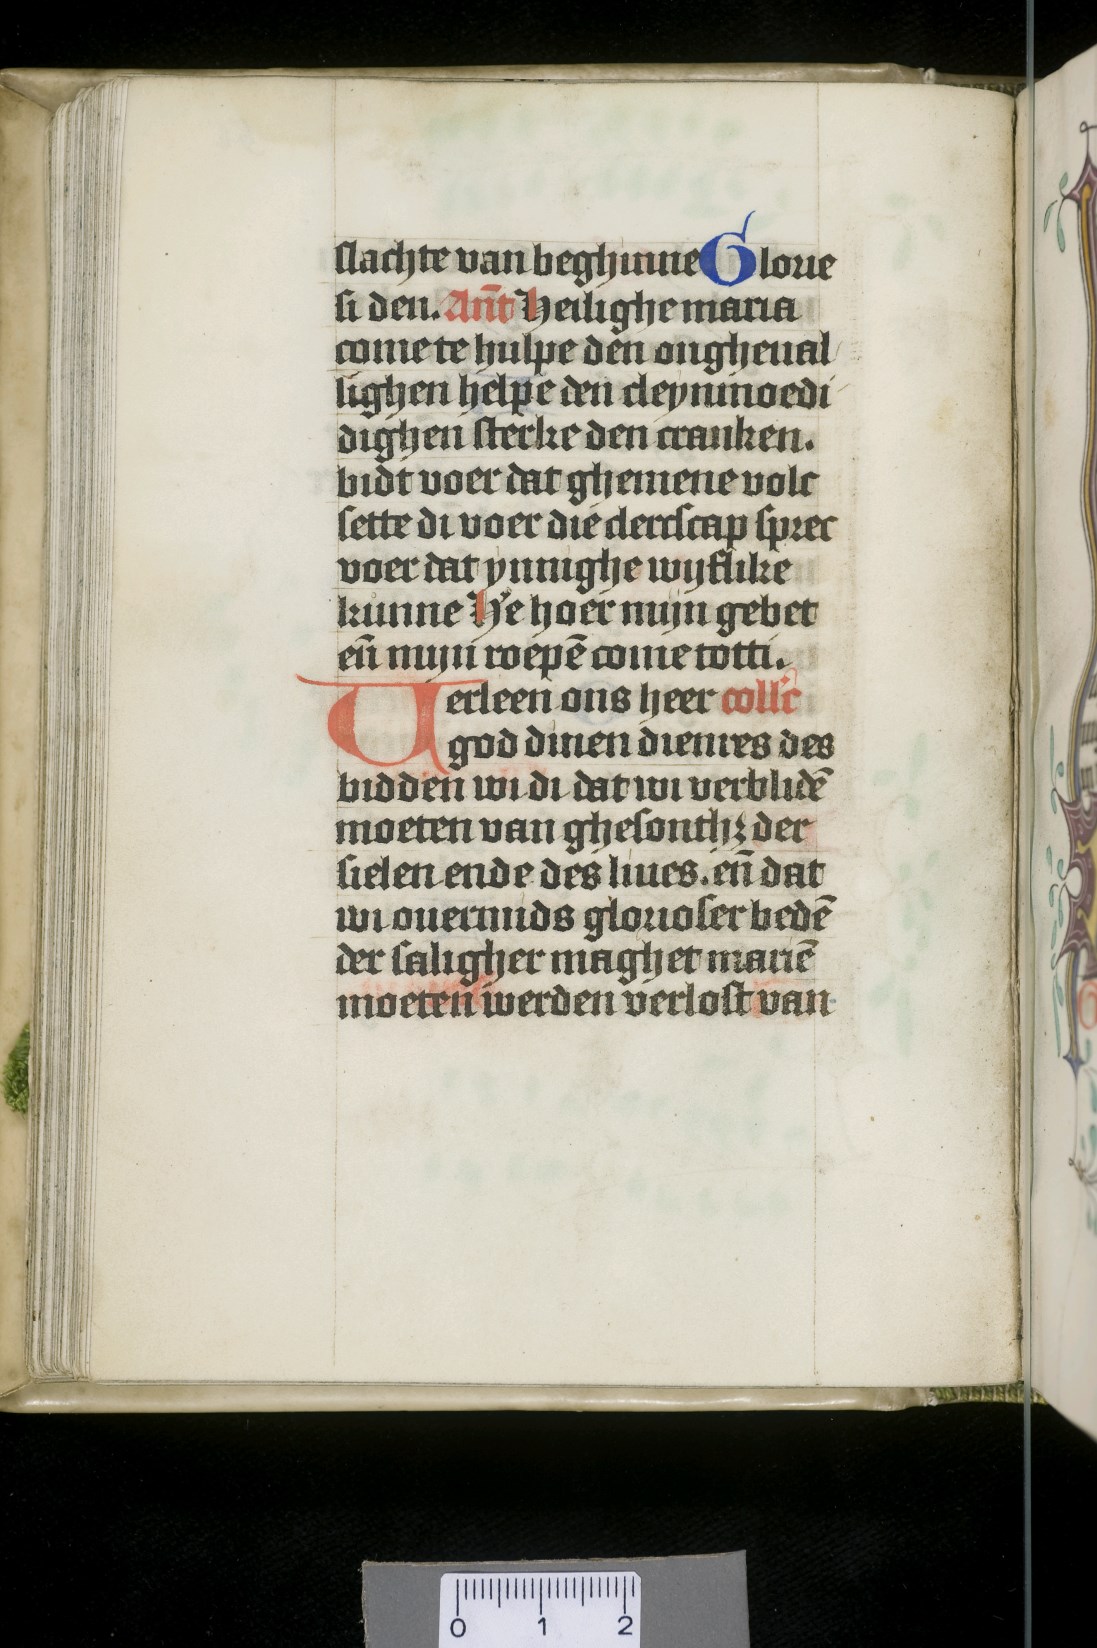 slachte van beghinne Glorie
si den. Ant̄ Heilighe maria
come te hulpe den ongheual
lighen helpe den cleynmoedi
dighen sterke den cranken.
bidt voer dat ghemene volc
sette di voer die clerdscap sprec
voer dat ynnighe wijflike
kunne H'e hoer mijn gebet
en̄ mijn roepē come tot ti.
Verleen ons heer coll'c
god dinen dienres des
bidden wi di dat wi verblidē
moeten van ghesonthꝫ der
sielen ende des liues. en̄ dat
wi ouermids glorioser bedē
der saligher maghet mariē
moeten werden verlost van
0 1 2